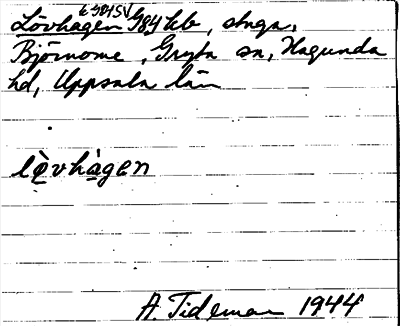 Lövhagen G84 hb, stuga,
Björnome, Gryta sn, Hagunda
hd, Uppsala län
lövhagen
A. Tideman 1944